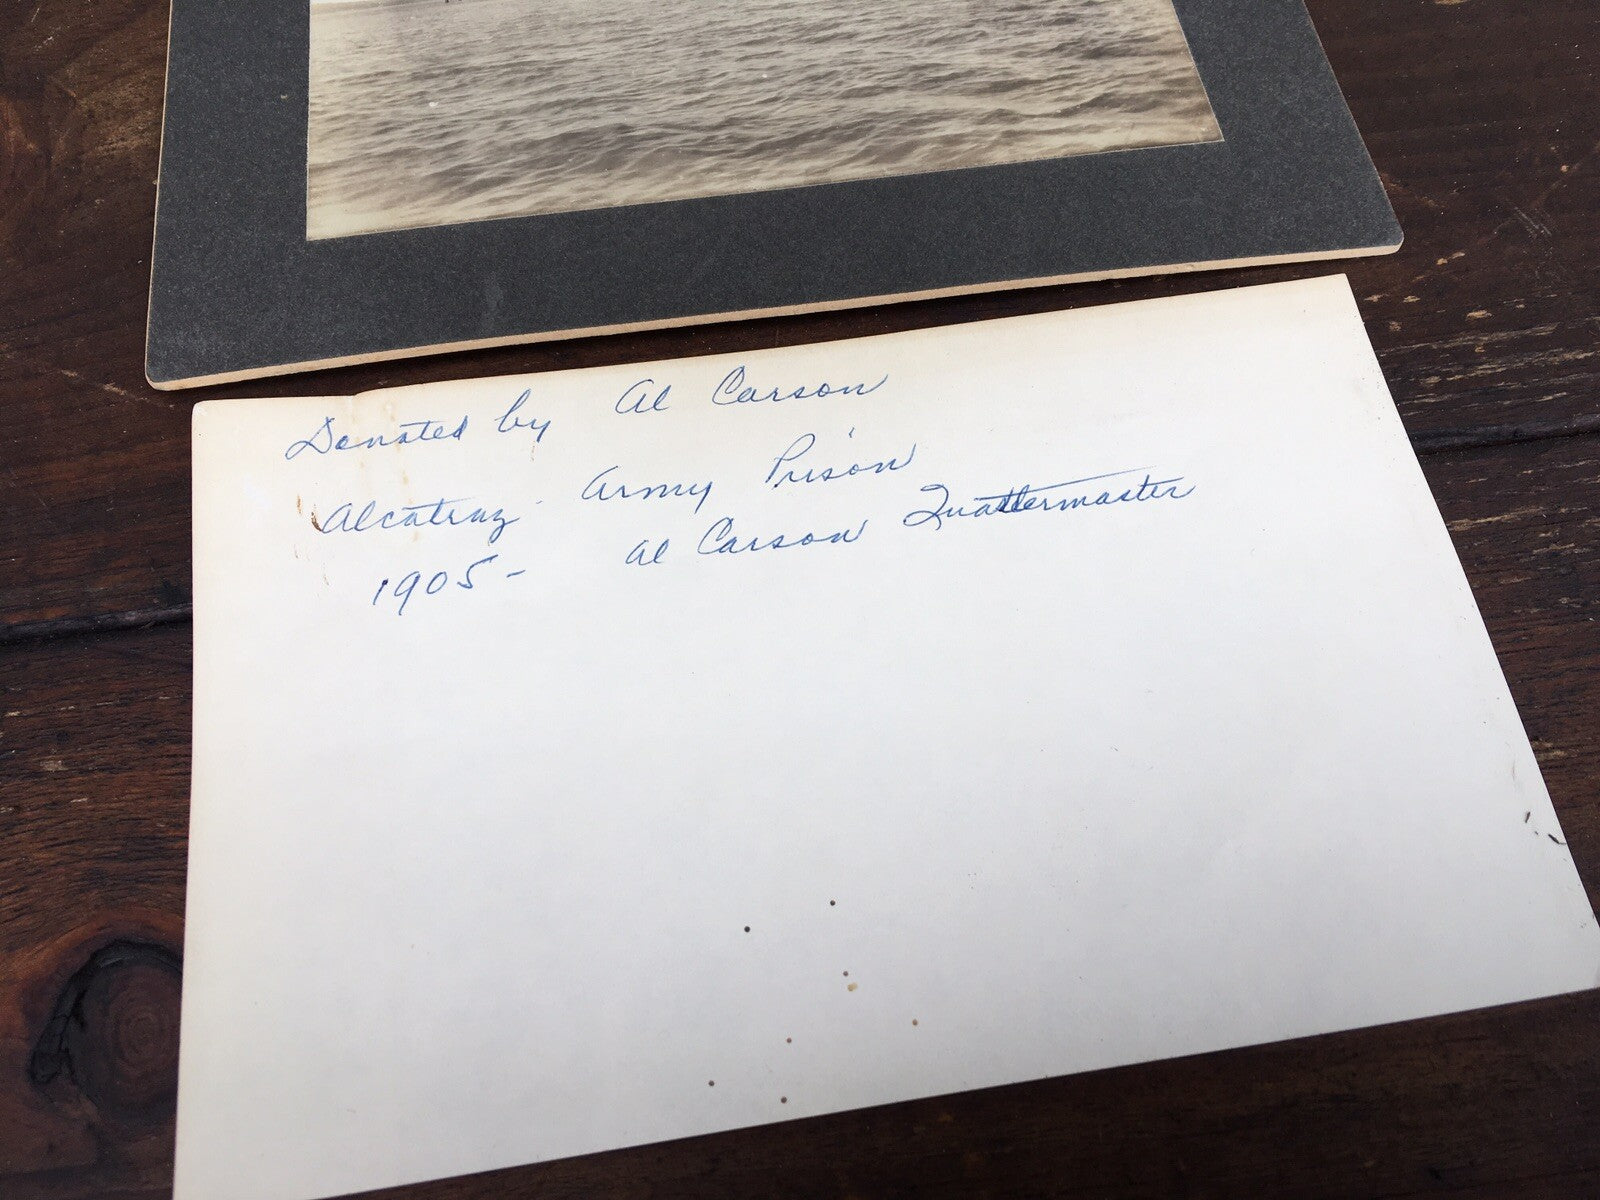 Donated by Al Carson
Alcatraz Army Prison
1905 - Al Carson Quattermaster